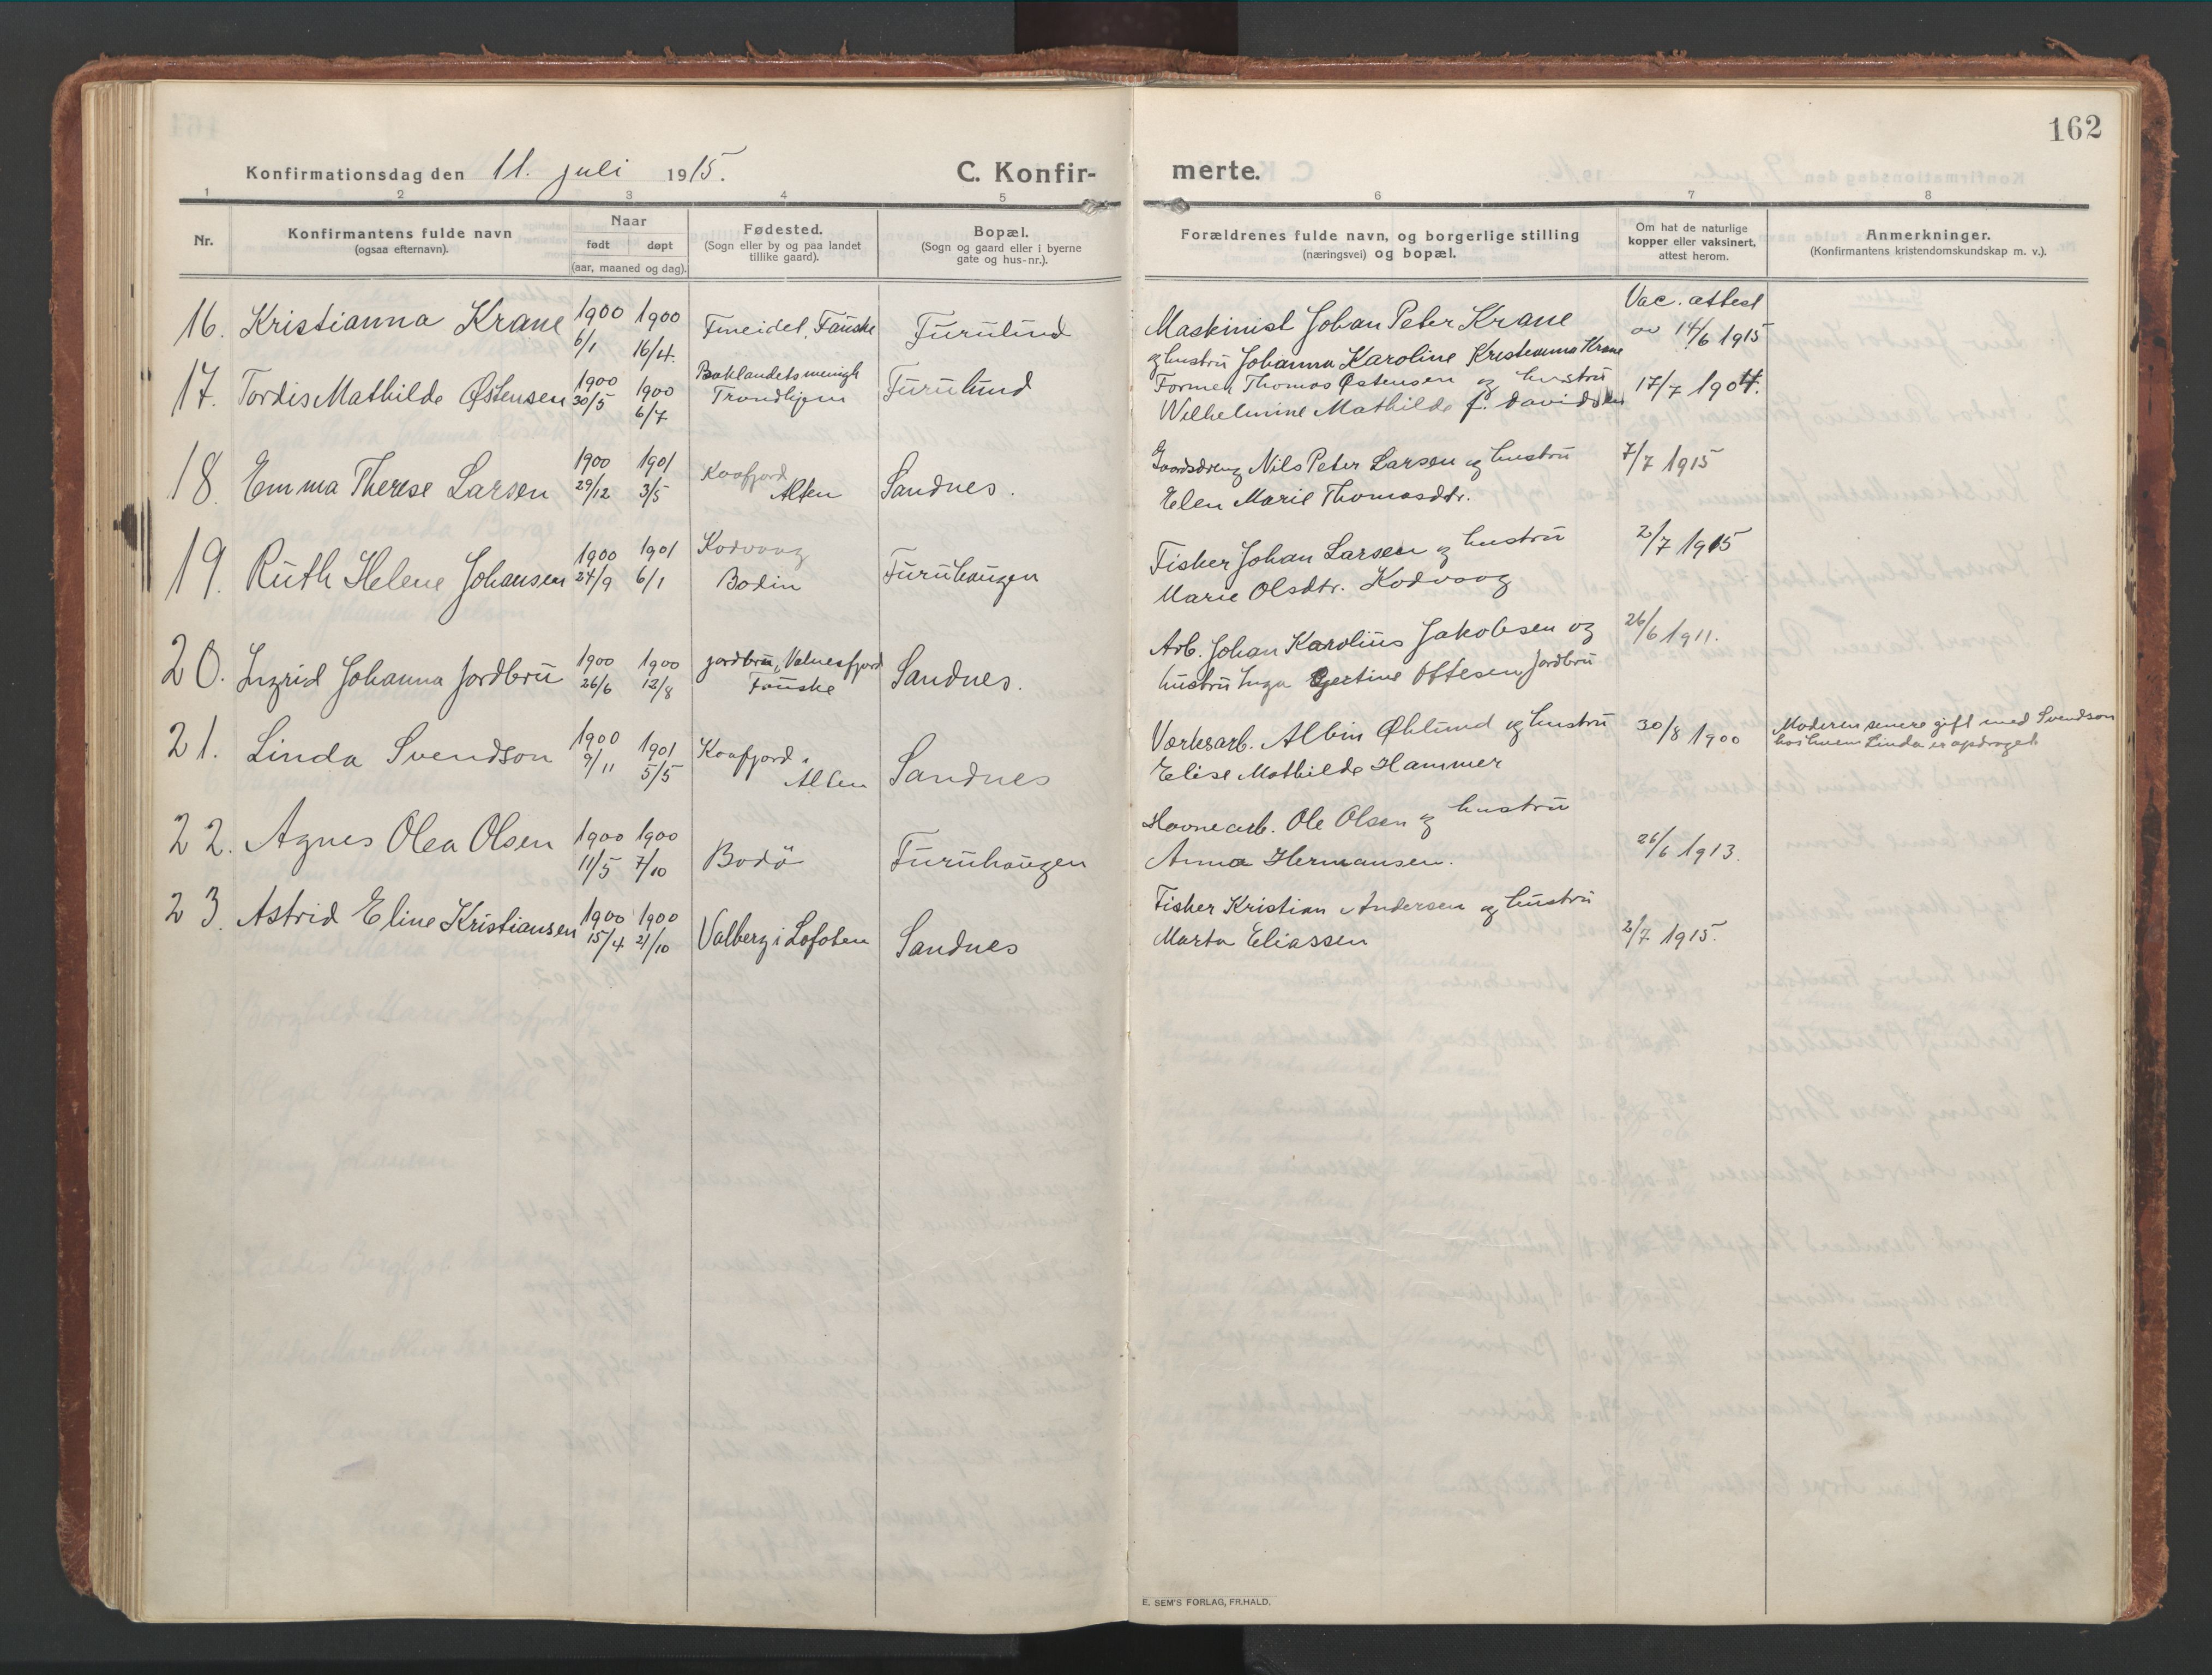 162
Konfirmationsdag den 11. juli 1915. C. Konfir- merte.
1 2 3 4 5 6 7 8
Nr.
Konfirmantens fulde navn
(ogsaa efternavn).
Naar
født døpt
(aar, maaned og dag).
Fødested.
(Sogn eller by og paa landet
tillike gaard).
Bopæl.
(Sogn og gaard eller i byerne
gate og hus-nr.).
Forældrenes fulde navn, og borgerlige stilling
(næringsvei) og bopæl.
Om hat de naturlige
kopper eller vaksinert,
attest herom.
Anmerkninger.
(Konfirmantens kristendomskundskap m. v.).
16. Kristianna Krane 1900 6/1 1900 16/4. Fineidet, Fauske Furulund
Maskinist Johan Peter Krane
og hustru Johanna Karoline Kristianna Krane
Vac. attest
av 14/6 1915
17. Tordis Mathilde Østensen 1900 30/5 1900 6/7
Baklandets menigh
Trondhjem
Furulund
Formen Thomas Østensen og hustru
Wilhelmine Mathilde f. Davidsen
17/7 1904.
18. Emma Therese Larsen 1900 29/12 1901 3/5
Kaafjord
Alten
Sandnes.
Gaardsdreng Nils Peter Larsen og hustru
Elen Marie Thomasdtr.
7/7 1915
19. Ruth Helene Johansen 1900 24/9 1901 6/1
Kodvaag
Bodin
Furuhaugen
Fisker Johan Larsen og hustru
Marie Olsdtr. Kodvaag
2/7 1915
20. Ingrid Johanna Jordbru 1900 26/6 1900 12/8
Jordbru, Valnesfjord
Fauske
Sandnes.
Arb. Johan Karolius Jakobsen og
hustru Inga Gjertine Ottesen Jordbru
26/6 1911.
21. Linda Svendson 1900 9/11 1901 5/5
Kaafjord i
Alten
Sandnes
Værksarb. Albin Øhlund og hustru
Elise Mathilde Hammer
30/8 1900
Moderen senere gift med Svendson
hos hvem Linda er opdraget
22. Agnes Olea Olsen 1900 11/5 1900 7/10 Bodö Furuhaugen
Havnearb. Ole Olsen og hustru
Anna Hermansen.
26/6 1913.
23. Astrid Eline Kristiansen 1900 15/4 1900 21/10 Valberg i Lofoten Sandnes
Fisker Kristian Andersen og hustru
Marta Eliassen
2/7 1915.
E. SEM'S FORLAG, FR.HALD.